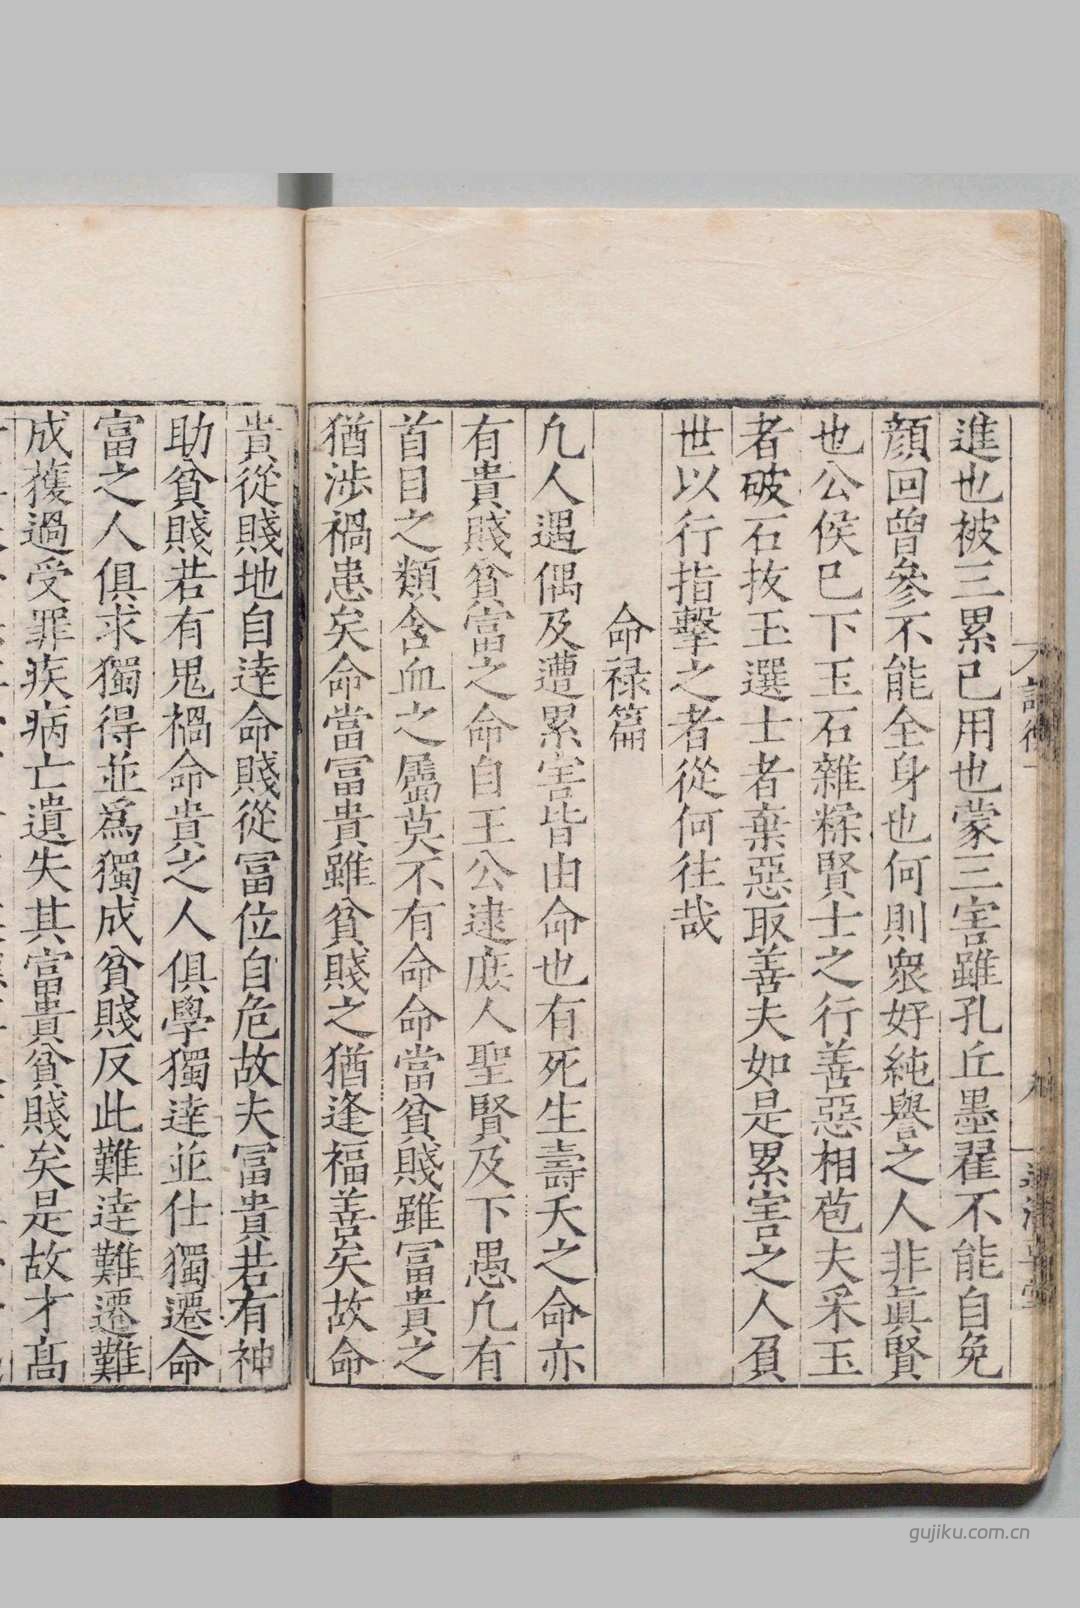 進也被三累已用也蒙三害雖孔丘墨翟不能自免
顔回曾參不能全身也何則衆好純譽之人非眞賢
也公侯已下玉石雜糅賢士之行善惡相苞夫采玉
者破石抜玉選士者棄惡取善夫如是累害之人負
世以行指擊之者從何往哉
命禄篇
凢人遇偶及遭累害皆由命也有死生壽夭之命亦
有貴賤貧富之命自王公逮庶人聖賢及下愚凢有
首目之類含血之屬莫不有命命當貧賤雖冨貴之
猶涉禍患矣命當冨貴雖貧賤之猶逢福善矣故命
貴從賤地自達命賤從冨位自危故夫冨貴若有神
助貧賤若有鬼禍命貴之人俱學獨達並仕獨遷命
富之人俱求獨得並爲獨成貧賤反此難達難遷難
成獲過受罪疾病亡遺失其富貴貧賤矣是故才髙
gujiku.com.cn